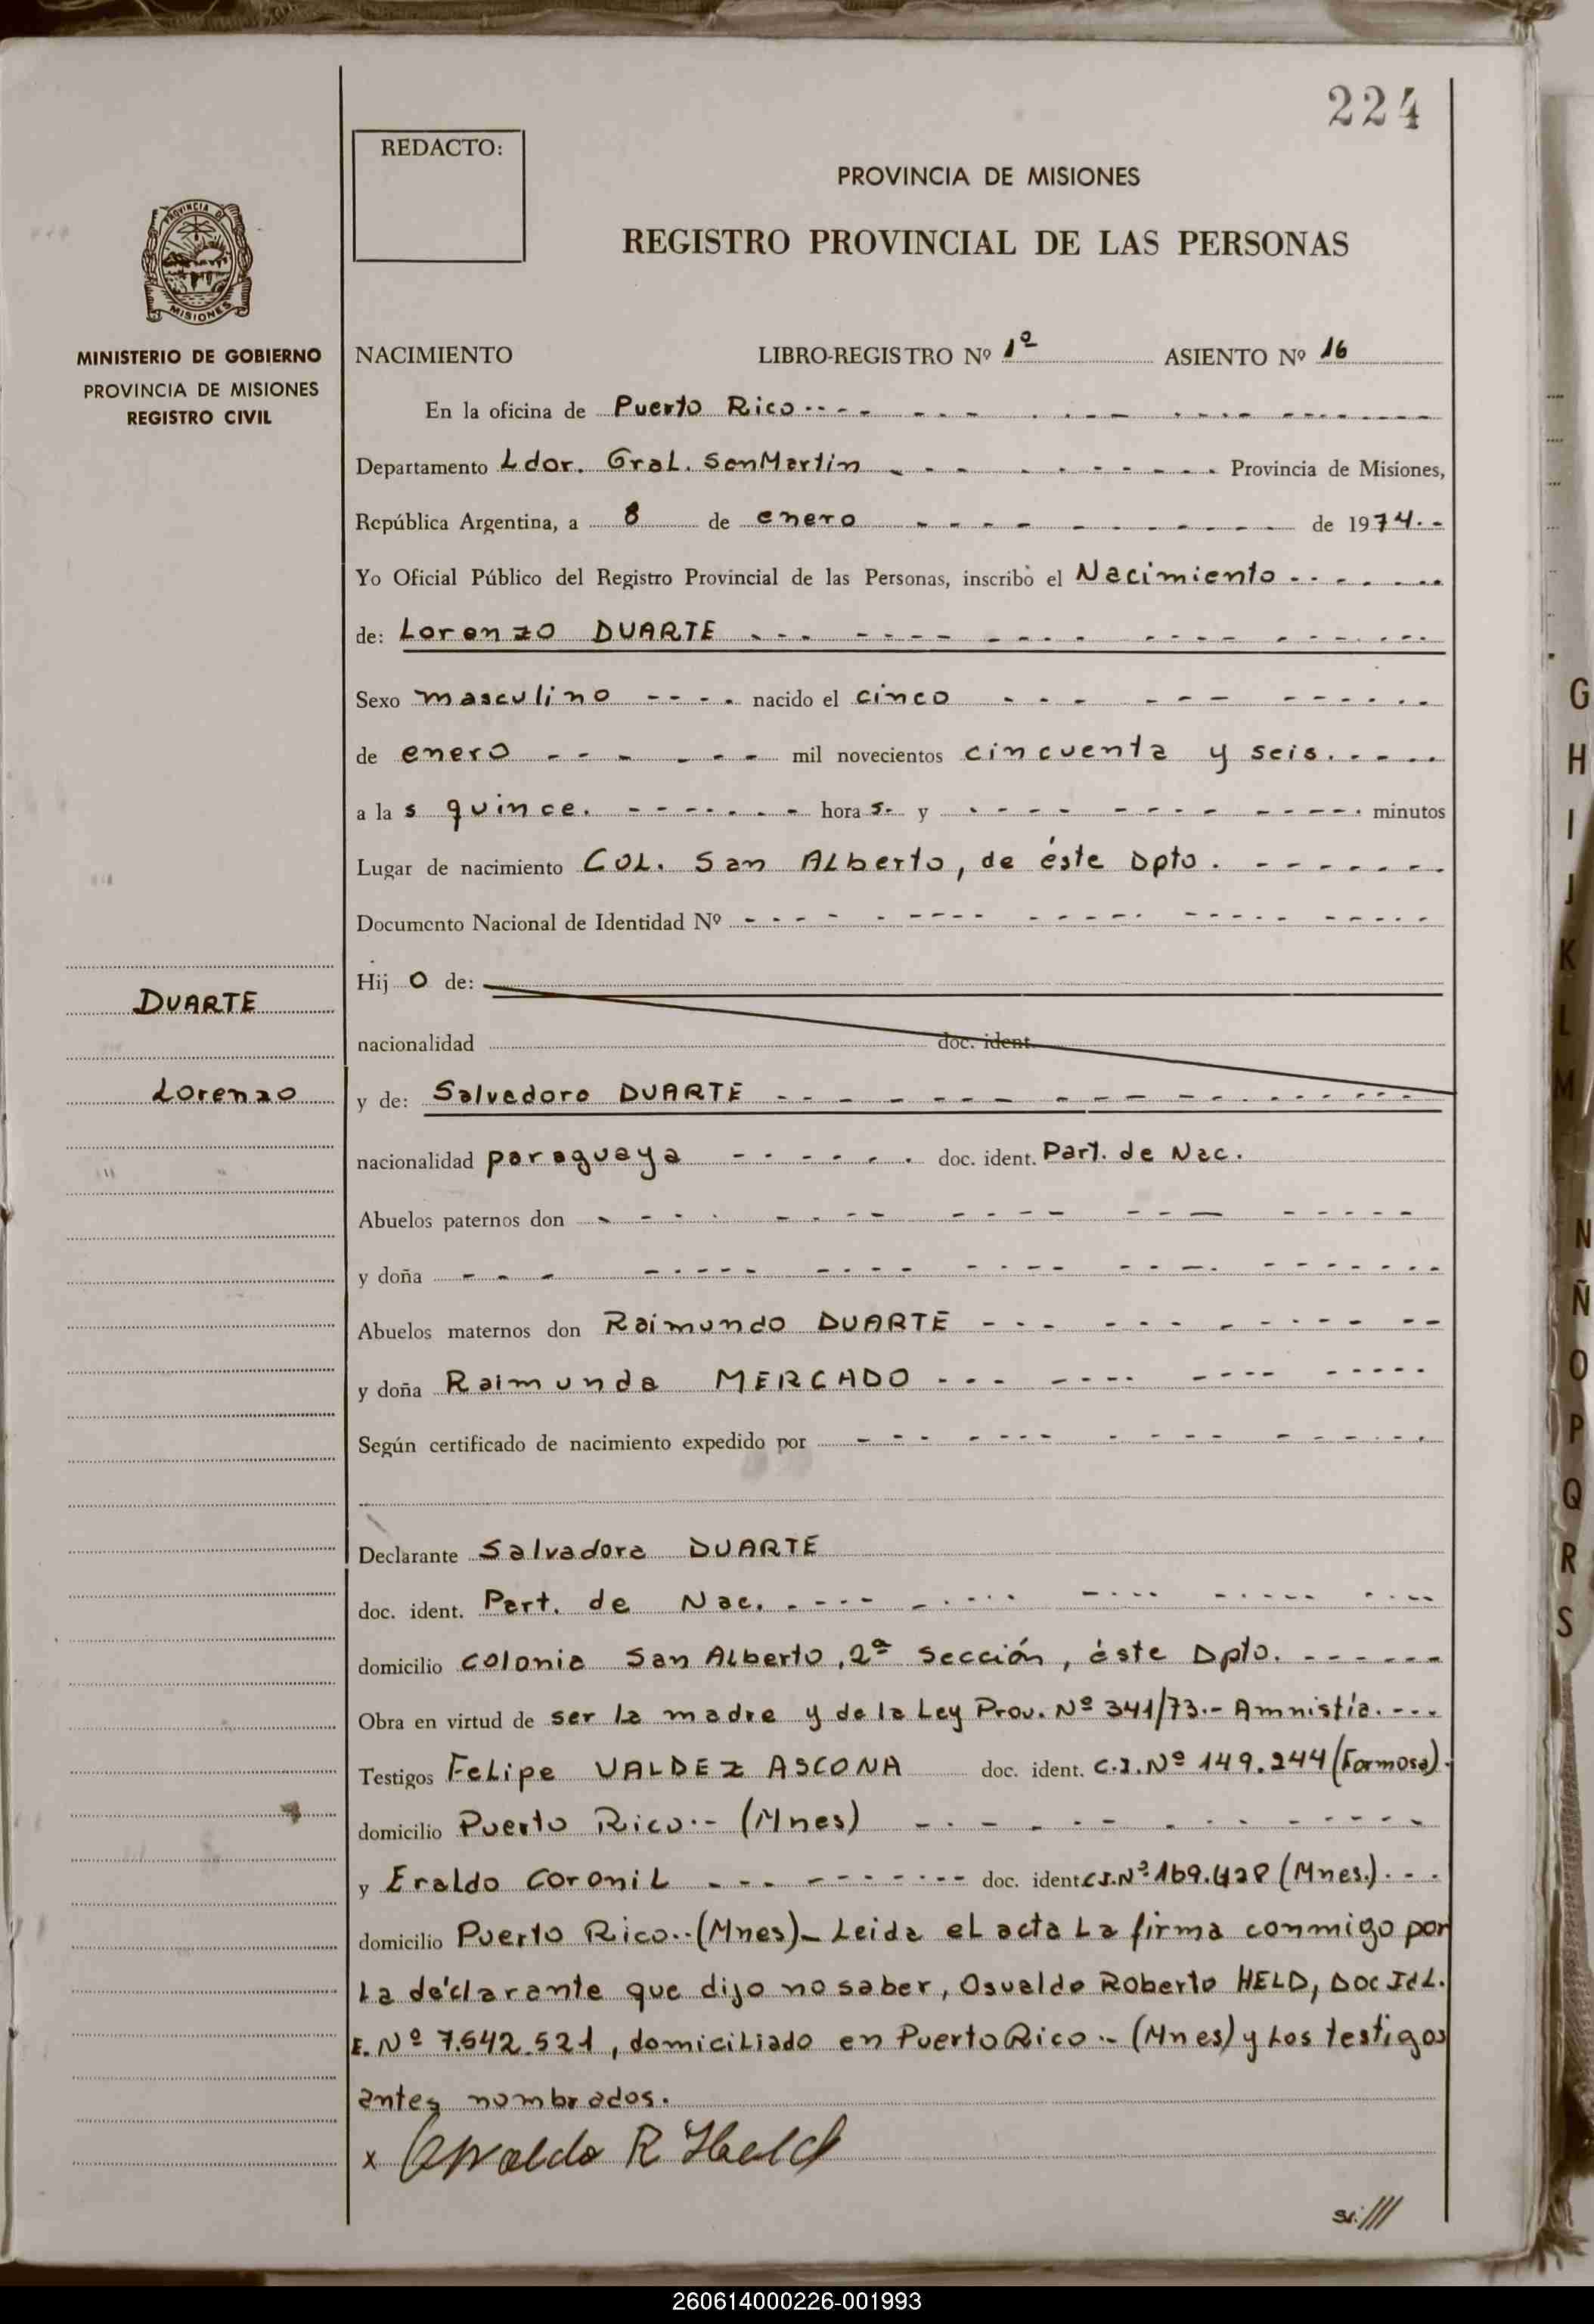 224
REDACTO:
PROVINCIA DE MISIONES
REGISTRO PROVINCIAL DE LAS PERSONAS
PROVINCIA DE
MISIONES
MINISTERIO DE GOBIERNO
PROVINCIA DE MISIONES
REGISTRO CIVIL
NACIMIENTO LIBRO-REGISTRO Nº 1º ASIENTO Nº 16
En la oficina de Puerto Rico
Departamento Ldor. Gral. San Martin Provincia de Misiones,
República Argentina, a 8 de enero de 1974.-
Yo Oficial Público del Registro Provincial de las Personas, inscribo el Nacimiento
de: Lorenzo DUARTE
Sexo masculino nacido el cinco
de enero mil novecientos cincuenta y seis.
a las quince. horas.- y minutos
Lugar de nacimiento COL. San Alberto, de éste Dpto.
Documento Nacional de Identidad Nº
Hijo de:
DUARTE
nacionalidad doc. ident.
Lorenzo
y de: Salvadora DUARTE
nacionalidad paraguaya doc. ident. Part. de Nac.
Abuelos paternos don
y doña
Abuelos maternos don Raimundo DUARTE
y doña Raimunda MERCADO
Según certificado de nacimiento expedido por
Declarante Salvadora DUARTE
doc. ident. Part. de Nac.
domicilio Colonia San Alberto, 2ª Sección, éste Dpto.
Obra en virtud de ser la madre y de la Ley Prov. Nº 341/73.- Amnistía.
Testigos Felipe VALDEZ ASCONA doc. ident. C.I. Nº 149.244 (Formosa).
domicilio Puerto Rico.- (Mnes)
y Eraldo Coronil doc. ident. C.I. Nº (Mnes.).
domicilio Puerto Rico.- (Mnes)- Leida el acta La firma conmigo por
La declarante que dijo no saber, Osvaldo Roberto HELD, Doc Id L.
E. Nº 7.542.521, domiciliado en Puerto Rico.- (Mnes) y Los testigos
antes nombrados.
x Osvaldo R Held
G
H
I
J
K
L
M
N
Ñ
O
P
Q
R
S
260614000226-001993